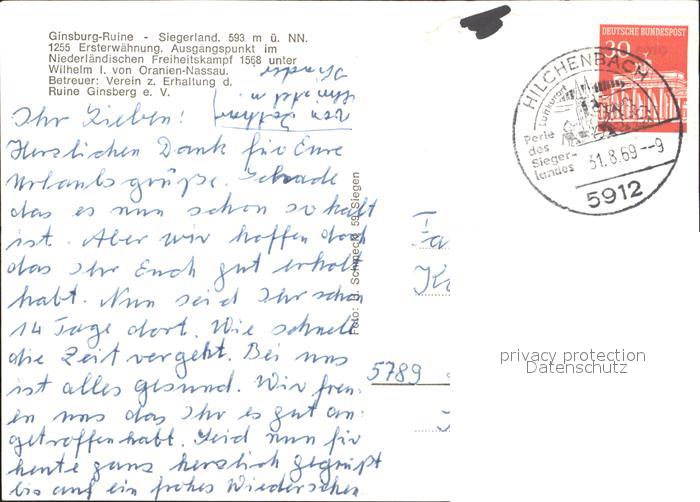 Ginsburg-Ruine - Siegerland. 593 m ü. NN.
1255 Ersterwähnung. Ausgangspunkt im
Niederländischen Freiheitskampf 1568 unter
Wilhelm I. von Oranien-Nassau.
Betreuer: Verein z. Erhaltung d.
Ruine Ginsberg e. V.
Ihr Lieben!
Herzlichen Dank für Eure
Urlaubsgrüße. Schade
das es nun schon so kalt
ist. Aber wir hoffen doch
das Ihr Euch gut erholt
habt. Nun seid Ihr schon
14 Tage dort. Wie schnell
die Zeit vergeht. Bei uns
ist alles gesund. Wir freu-
en uns das Ihr es gut an-
getroffen habt. Seid nun für
heute ganz herzlich gegrüßt
bis auf ein frohes Wiedersehen
Foto: D. Schmeck, 59 Siegen
DEUTSCHE BUNDESPOST
30
HILCHENBACH
Luftkurort
Perle
des
Sieger-
landes
31.8.69--9
5912
Fa
Ka
5789
privacy protection
Datenschutz